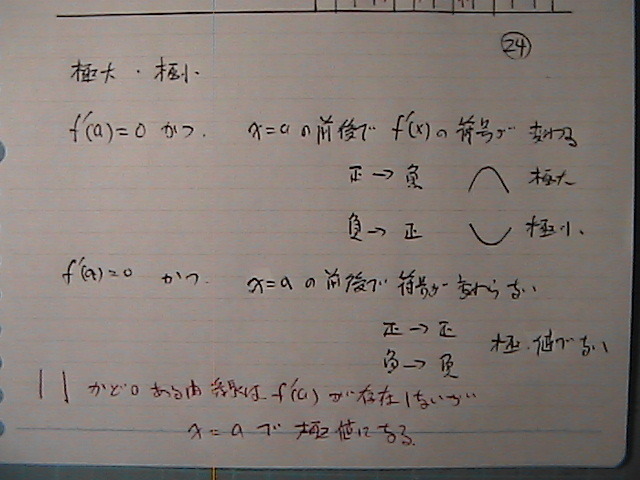 24
極大・極小
f'(a)=0 かつ x=a の前後で f'(x) の符号が 変わる
正→負 極大
負→正 極小
f'(a)=0 かつ x=a の前後で 符号が変わらない
正→正
負→負 極値でない
かどのある曲線は f'(a) が存在しないが
x=a で 極値になる